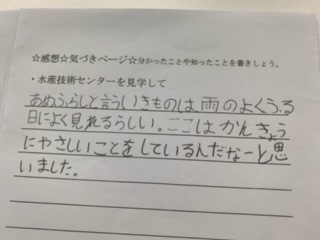 ☆感想☆気づきページ☆分かったことや知ったことを書きしょう。
・水産技術センターを見学して
あめふらしと言ういきものは、雨のよくふる
日によく見れるらしい。ここは、かんきょう
にやさしいことをしているんだなーと思
いました。